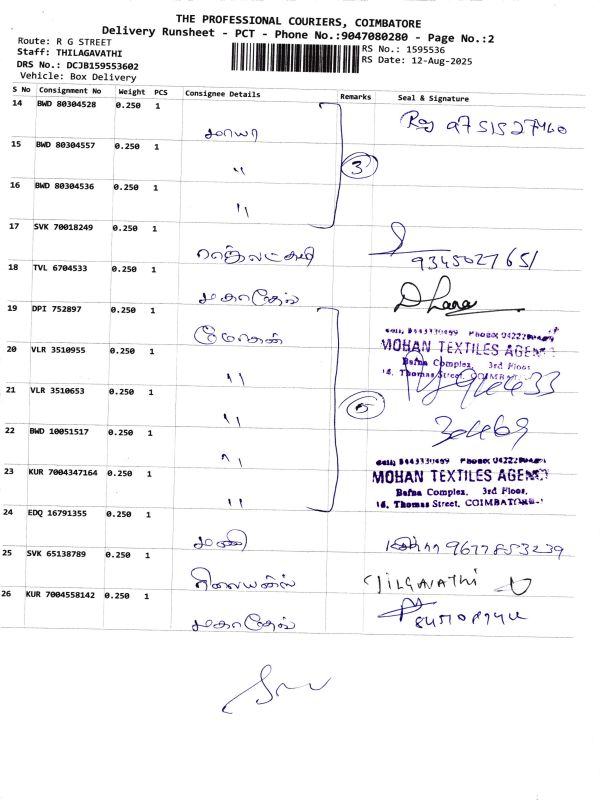 THE PROFESSIONAL COURIERS, COIMBATORE
Delivery Runsheet - PCT - Phone No.:9047080280 - Page No.:2
Route: R G STREET
Staff: THILAGAVATHI
DRS No.: DCJB159553602
Vehicle: Box Delivery
RS No.: 1595536
RS Date: 12-Aug-2025
S No Consignment No Weight PCS Consignee Details Remarks Seal & Signature
14 BWD 80304528 0.250 1
மாயா 9751527460
15 BWD 80304557 0.250 1
" 3
16 BWD 80304536 0.250 1
"
17 SVK 70018249 0.250 1
9345027651
18 TVL 6704533 0.250 1
மகாதேவ் Dhana
19 DPI 752897 0.250 1
மோகன்
MOHAN TEXTILES AGENCY
Bafna Complex, 3rd Floor,
16, Thomas Street, COIMBATORE
20 VLR 3510955 0.250 1
"
21 VLR 3510653 0.250 1
" 5 30469
22 BWD 10051517 0.250 1
"
23 KUR 7004347164 0.250 1
"
MOHAN TEXTILES AGENCY
Bafna Complex, 3rd Floor,
16, Thomas Street, COIMBATORE-1
24 EDQ 16791355 0.250 1
மணி 9677853239
25 SVK 65138789 0.250 1
ரிலையன்ஸ்
26 KUR 7004558142 0.250 1
மகாதேவ்